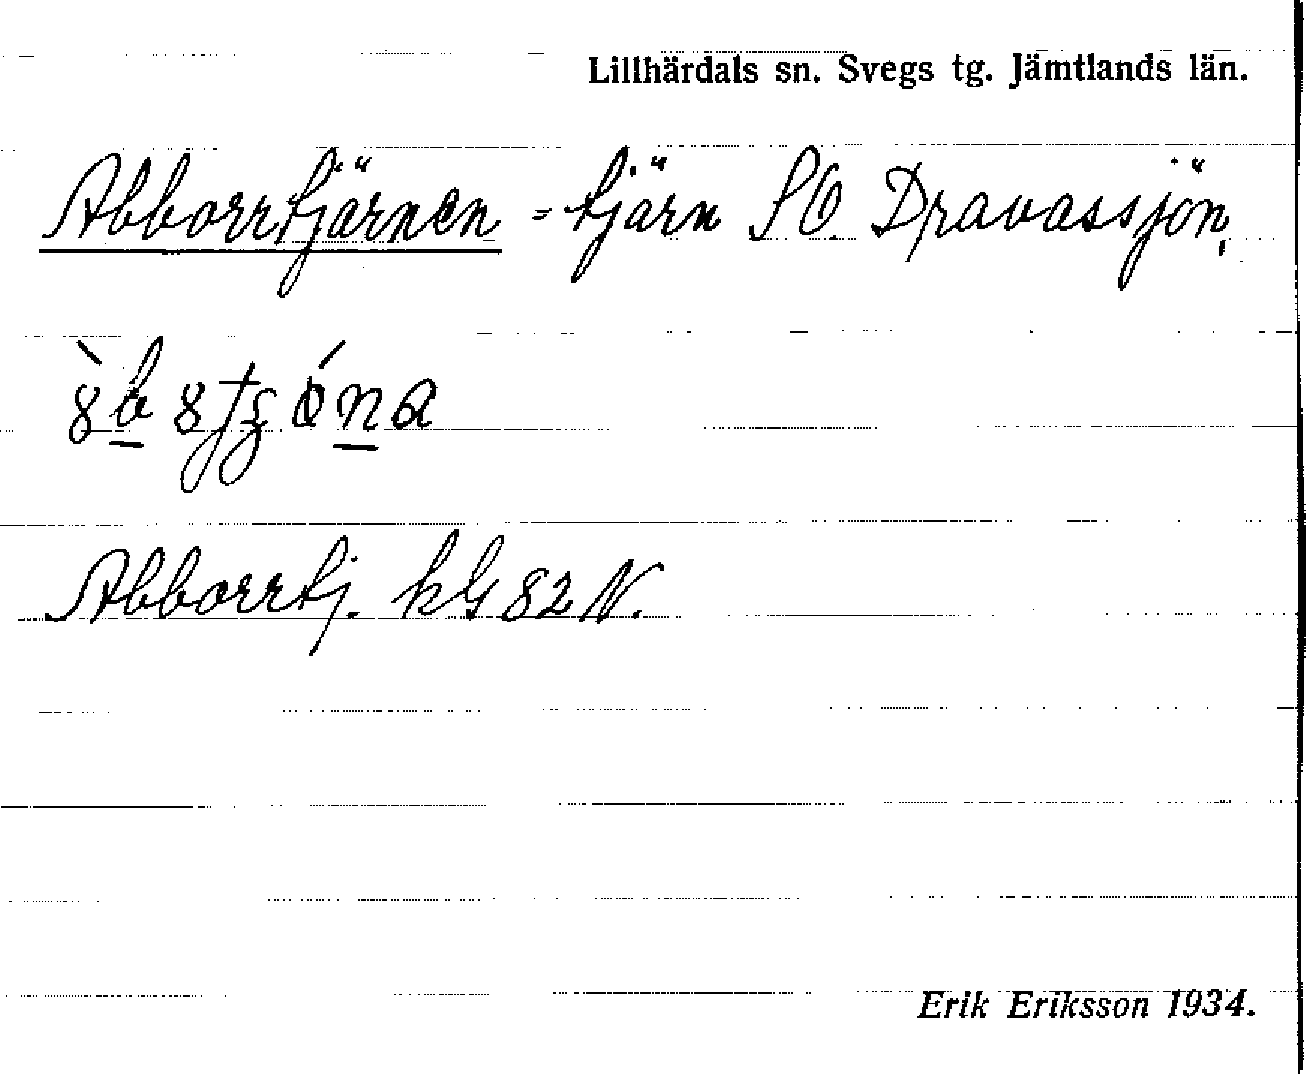 Lillhärdals sn. Svegs tg. Jämtlands län.
Abborrtjärnen = tjärn SO Dravassjön,
Abborrtj. kbl 82 N.
Erik Eriksson 1934.